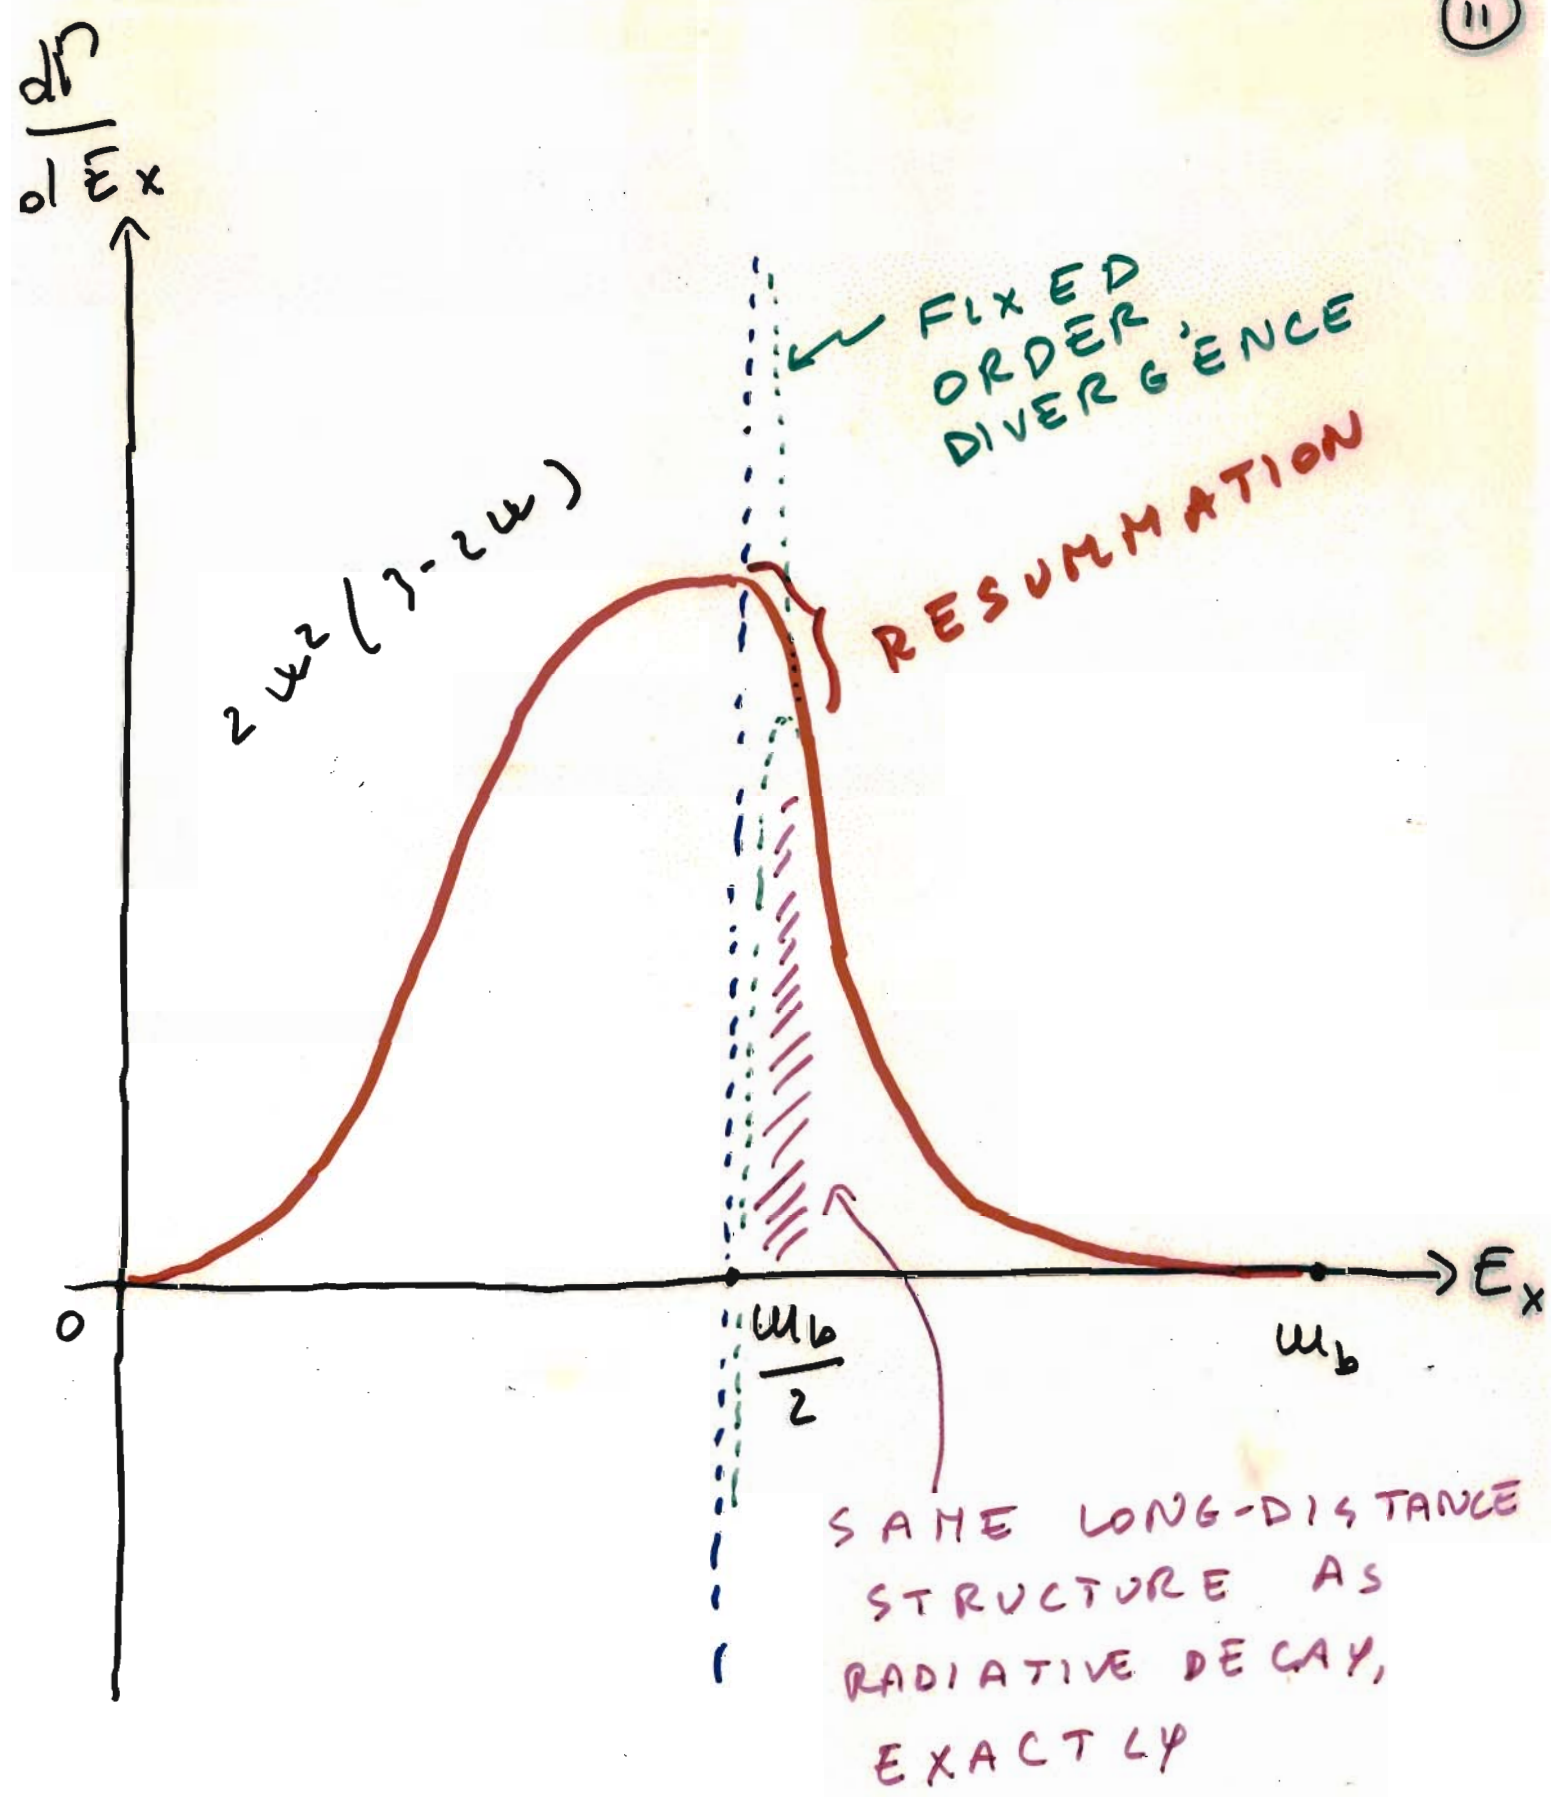 11
dΓ
dEx
FIXED
ORDER
DIVERGENCE
RESUMMATION
2w²(3-2w)
Ex
0
mb
2
mb
SAME LONG-DISTANCE
STRUCTURE AS
RADIATIVE DECAY,
EXACTLY